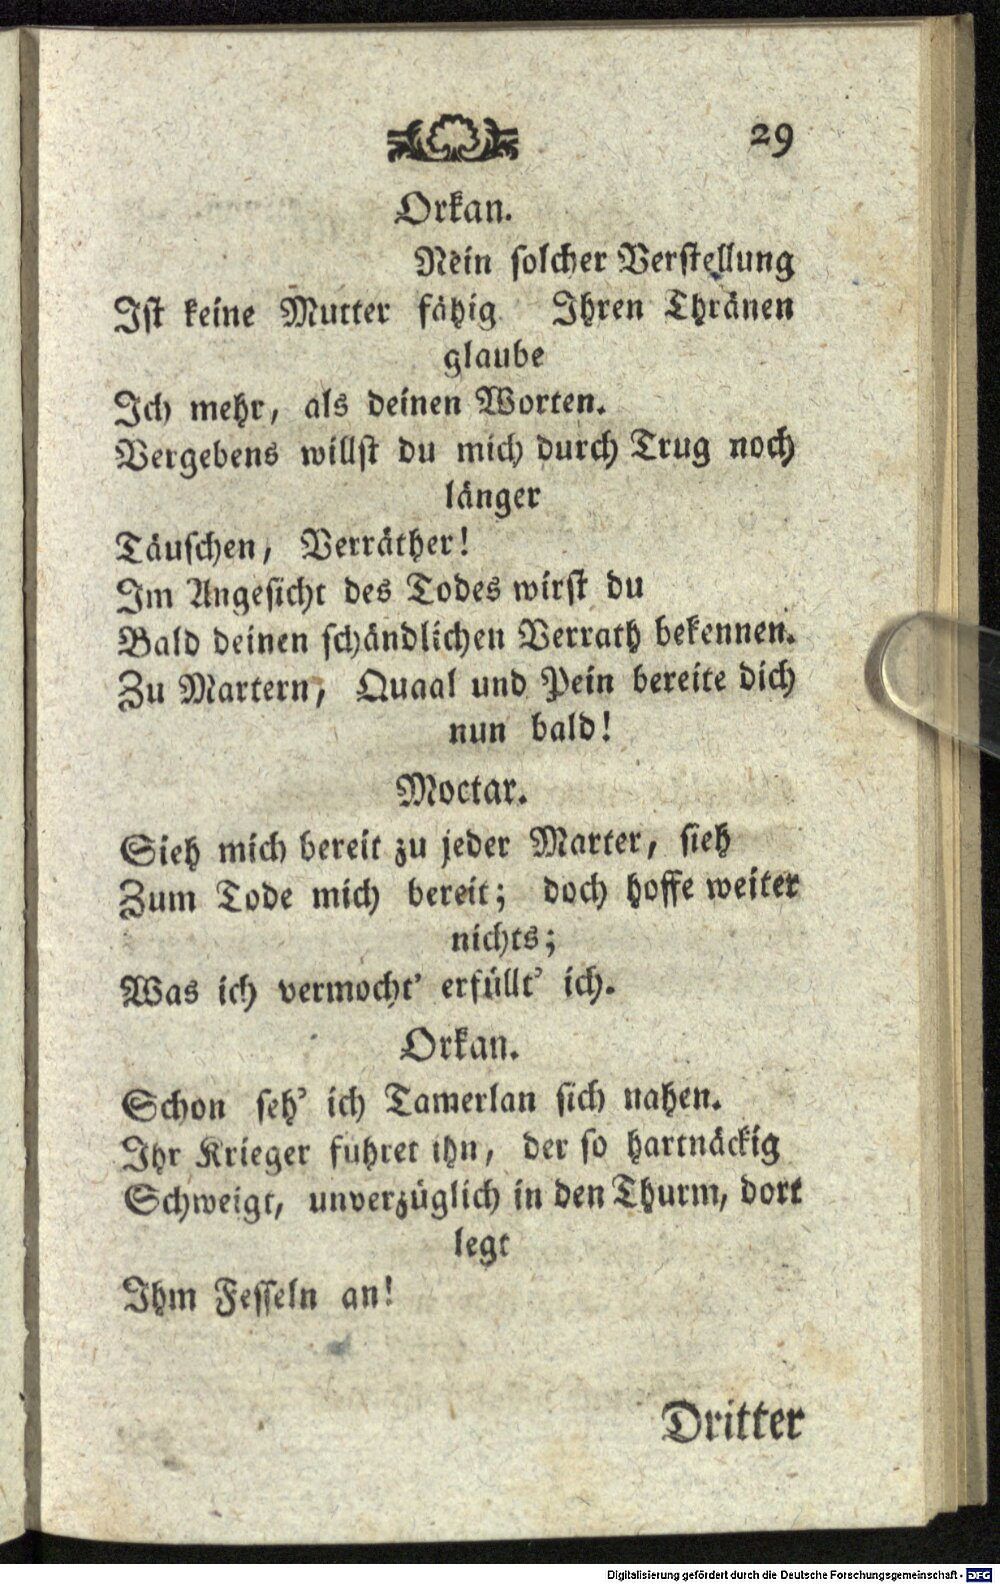 29
Orkan.
Nein solcher Verstellung
Ist keine Mutter fähig Ihren Thränen
glaube
Ich mehr, als deinen Worten.
Vergebens willst du mich durch Trug noch
länger
Täuschen, Verräther!
Im Angesicht des Todes wirst du
Bald deinen schändlichen Verrath bekennen.
Zu Martern, Quaal und Pein bereite dich
nun bald!
Moctar.
Sieh mich bereit zu jeder Marter, sieh
Zum Tode mich bereit; doch hoffe weiter
nichts;
Was ich vermocht' erfüllt' ich.
Orkan.
Schon seh' ich Tamerlan sich nahen.
Ihr Krieger fuhret ihn, der so hartnäckig
Schweigt, unverzüglich in den Thurm, dort
legt
Ihm Fesseln an!
Dritter
Digitalisierung gefördert durch die Deutsche Forschungsgemeinschaft - DFG